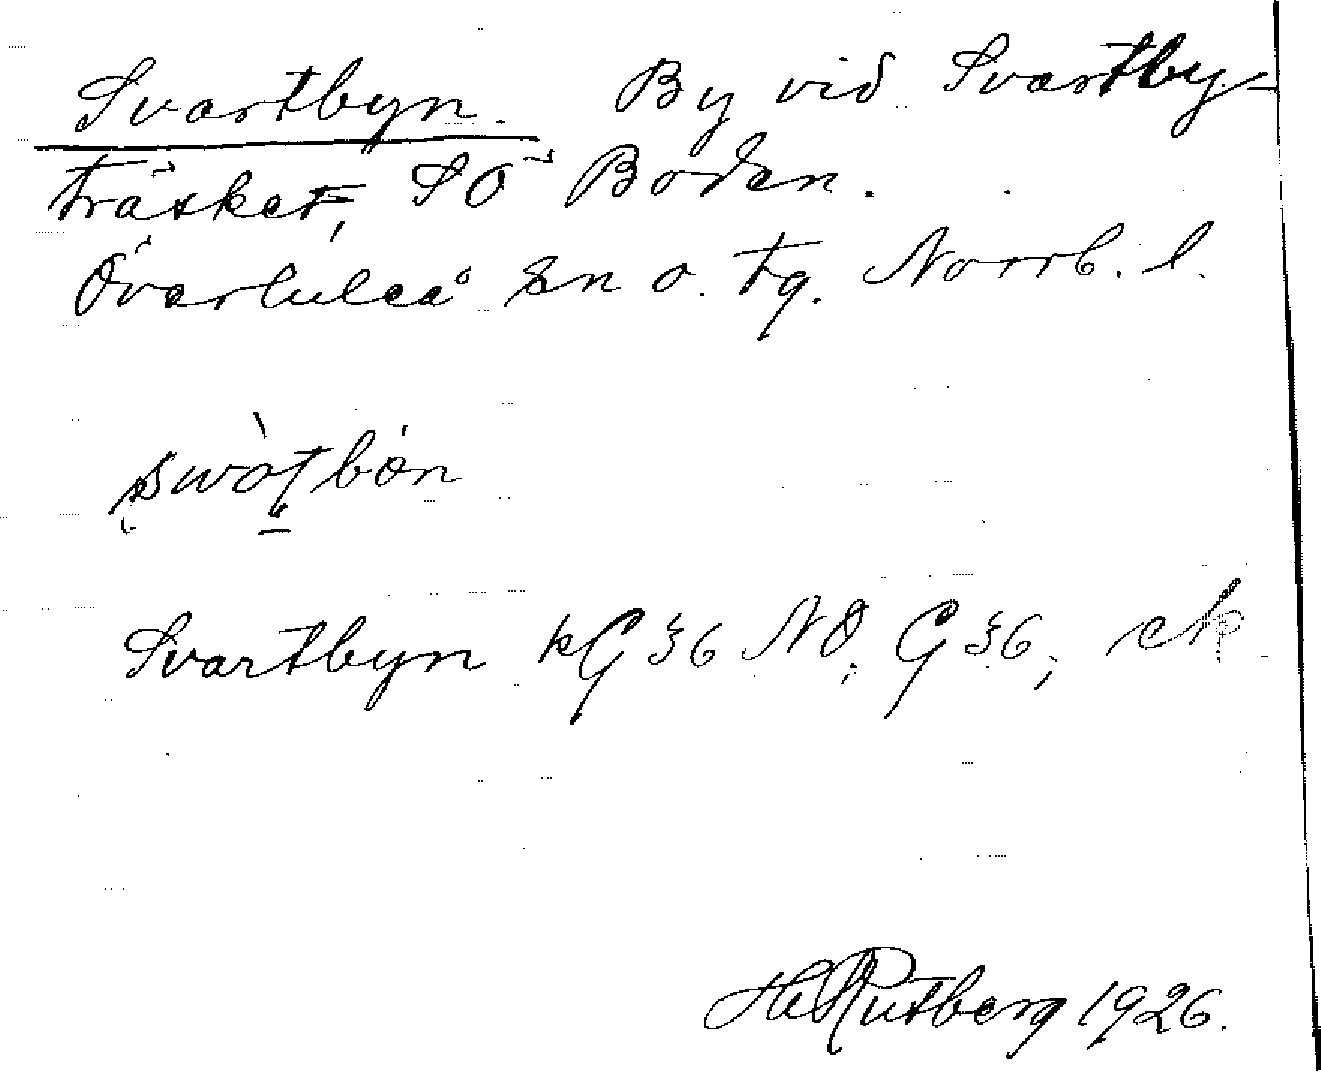 Svartbyn. By vid Svartby-
träsket, SÖ Boden.
Överluleå sn o. tg. Norrb. l.
swàt̠bón
Svartbyn kG 36 NO; G 36; ek
H Rutberg 1926.